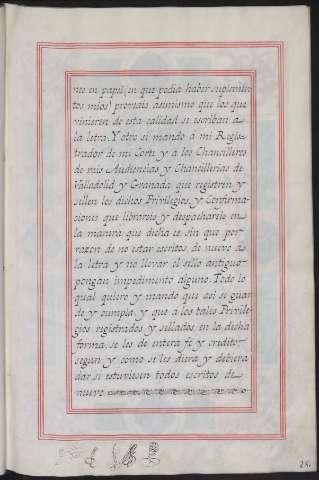 no en papel, en que podia haber suplantien
tos mios) proveais asimismo que los que
vinieren de esta calidad se escriban a
la letra. Y otro si mando a mi Regis-
trador de mi Corte y á los Chancilleres
de mis Audiencias y Chancillerias de
Valladolid y Granada que registren y
sellen los dichos Privilegios, y Confirma-
ciones que librareis y despachareis en
la manera que dicha es, sin que por
razon de no estar escritos, de nuevo a
la letra y no llevar el sello antiguo
pongan impedimento alguno. Todo lo
qual quiero y mando que asi se guar
de y cumpla, y que a los tales Privile-
gios registrados y sellados en la dicha
forma, se les de entera fe y credito
segun y como se les diera y debiera
dar si estuviesen todos escritos de
nuevo
28.